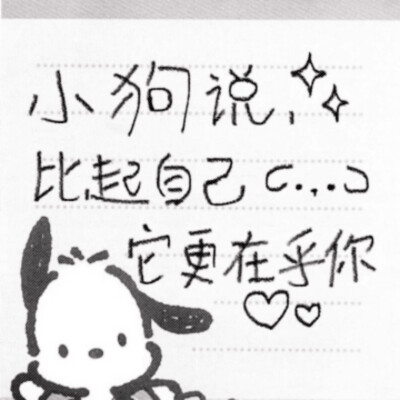 小狗说,
比起自己 (.,.)
它更在乎你